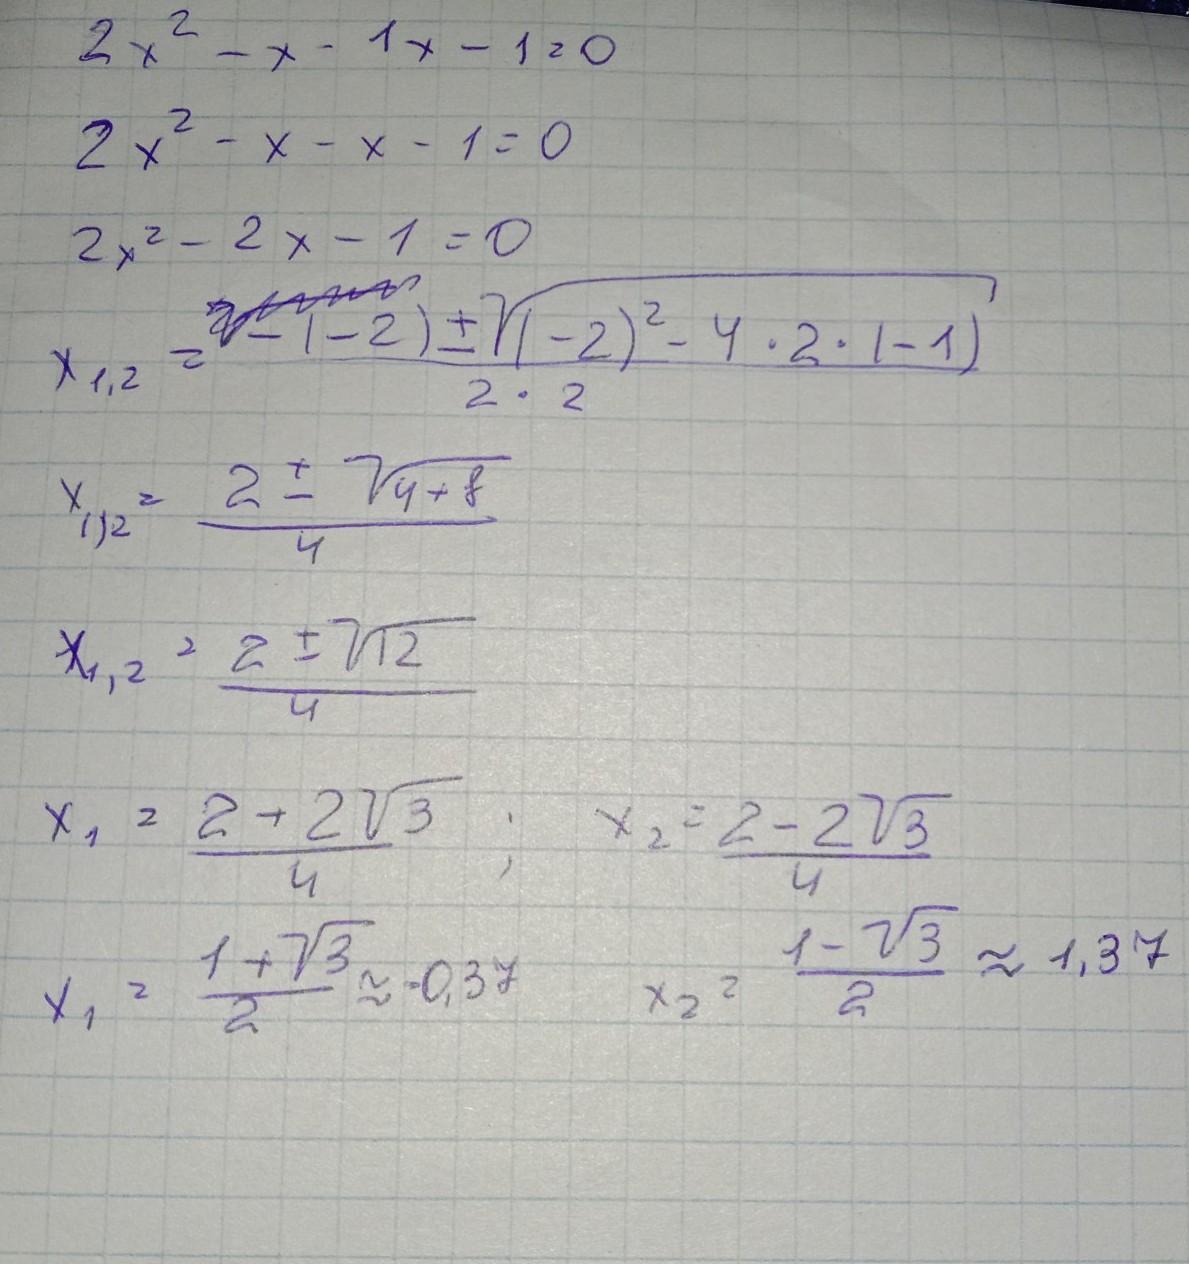 2x² - x - 1x - 1 = 0
2x² - x - x - 1 = 0
2x² - 2x - 1 = 0
x₁,₂ = (-(-2) ± √((-2)² - 4 · 2 · (-1))) / (2 · 2)
x₁,₂ = (2 ± √(4 + 8)) / 4
x₁,₂ = (2 ± √12) / 4
x₁ = (2 + 2√3) / 4 ; x₂ = (2 - 2√3) / 4
x₁ = (1 + √3) / 2 ≈ -0,37 x₂ = (1 - √3) / 2 ≈ 1,37